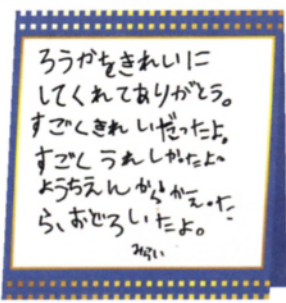 ろうかをきれいに
してくれてありがとう。
すごくきれいだったよ。
すごくうれしかったよ。
ようちえんからかえった
ら、おどろいたよ。
みらい